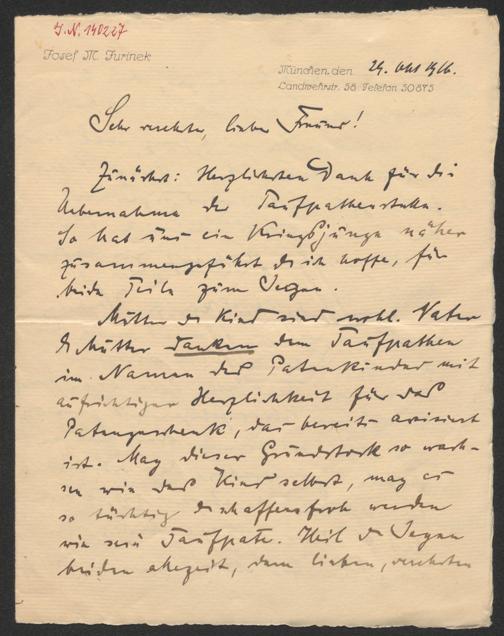 J.N. 140227
Josef M. Jurinek
München, den 24. Okt 1916.
Landwehrstr. 58 Telefon 50875
Sehr verehrter, lieber Freund!
Zunächst: Herzlichsten Dank für die
Uebernahme der Taufpathenstelle.
So hat uns ein Kriegsjunge näher
zusammengeführt & ich hoffe, für
beide Teile zum Segen.
Mutter & Kind sind wohl. Vater
& Mutter danken dem Taufpathen
im Namen des Patenkindes mit
aufrichtiger Herzlichkeit für das
Patengeschenk, das bereits avisiert
ist. Mag dieser Grundstock so wach-
sen wie das Kind selbst, mag es
so tüchtig & schaffensfroh werden
wie sein Taufpate. Heil & Segen
beiden allezeit, dem lieben, verehrten